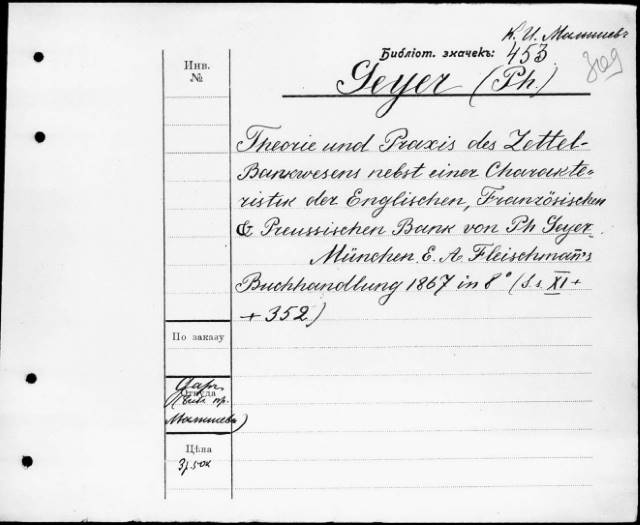 К. И. Малышевъ
Библіот. значекъ:
453
309
Инв.
№
Geyer (Ph.)
Theorie und Praxis des Zettel-
Bankwesens nebst einer Charakte-
ristik der Englischen, Französischen
& Preussischen Bank von Ph Geyer.
München, E. A. Fleischmañ's
Buchhandlung 1867 in 8° (S.s. XI +
+ 352)
По заказу
Даръ
Откуда
Малышева)
Цѣна